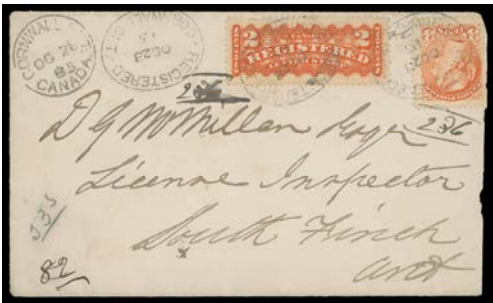 CORNWALL
OC 26
85
CANADA
REGISTERED
OC 26
2
REGISTERED
2
3
236
D G McMillan Esqr
License Inspector
South Finch
Ont
535
82